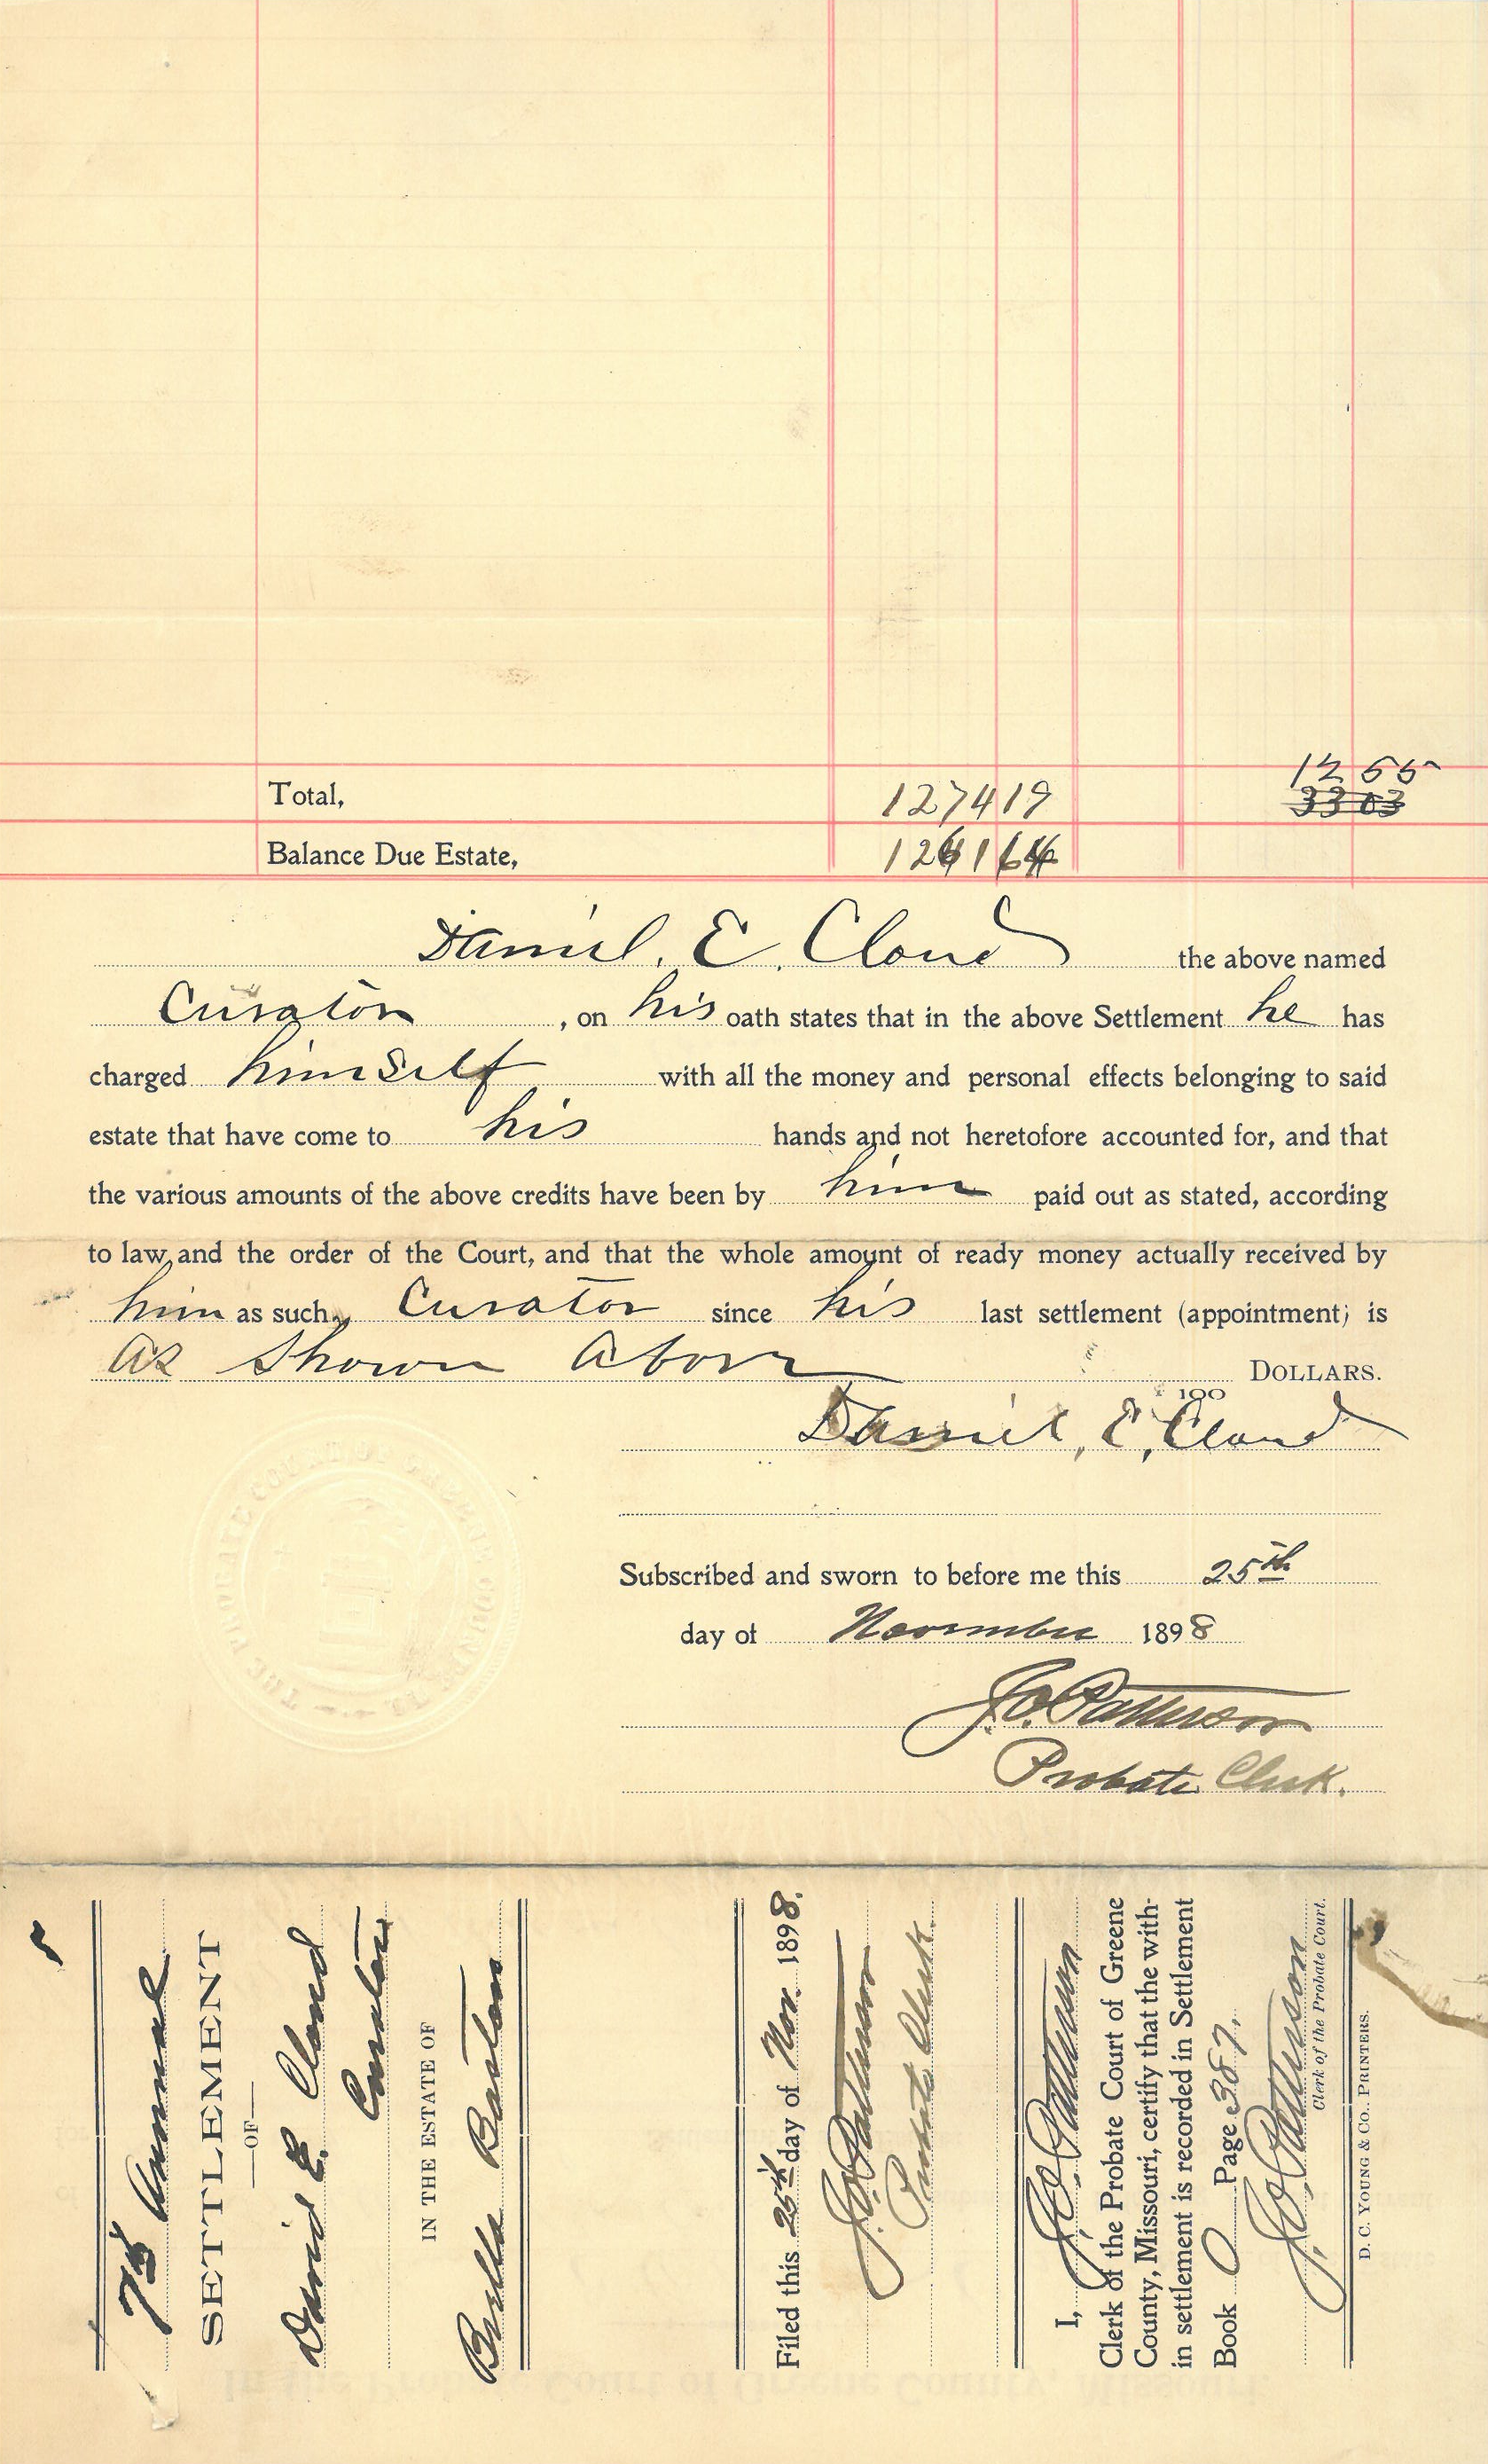 12 55
Total, 1274 19 33 03
Balance Due Estate, 1261 64
Daniel. E. Cloud the above named
Curator, on his oath states that in the above Settlement he has
charged himself with all the money and personal effects belonging to said
estate that have come to his hands and not heretofore accounted for, and that
the various amounts of the above credits have been by him paid out as stated, according
to law, and the order of the Court, and that the whole amount of ready money actually received by
him as such, Curator since his last settlement (appointment) is
as shown above DOLLARS.
100
Daniel, E, Cloud
Subscribed and sworn to before me this 25th
day of November 1898
J. O. Patterson
Probate Clerk.
THE PROBATE COURT OF GREENE COUNTY MO
7th Annual
SETTLEMENT
—OF—
Daniel E. Cloud
Curator
IN THE ESTATE OF
Bulla Barton
Filed this 25th day of Nov. 1898.
J. O. Patterson
Probate Clerk.
I, J. O. Patterson
Clerk of the Probate Court of Greene
County, Missouri, certify that the with-
in settlement is recorded in Settlement
Book O Page 357.
J. O. Patterson
Clerk of the Probate Court.
D. C. YOUNG & CO., PRINTERS.